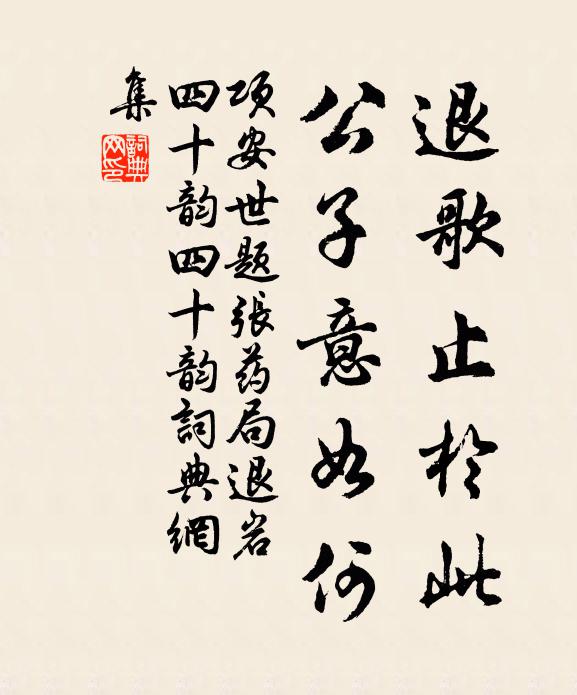 退歌止於此
公子意如何
项安世题張药局退岩
四十韵四十韵詞典網
集
詞典網印